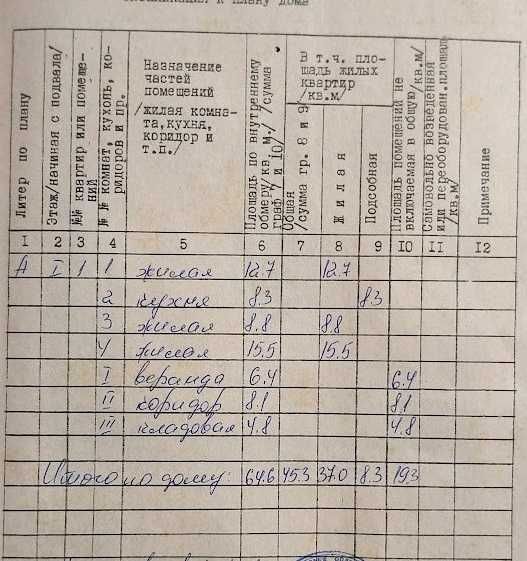 к плану дома
Литер по плану
Этаж/начиная с подвала/
№№ квартир или помещений
№ № комнат, кухонь, коридоров и пр.
Назначение частей помещений /жилая комната,кухня, коридор и т.п./
Площадь по внутреннему обмеру/кв. м./ /сумма граф 7 и 10/
В т.ч. площадь жилых квартир /кв.м/
Общая /сумма гр. 8 и 9/
Жилая
Подсобная
Площадь помещений не включаемая в общую/кв.м/
Самовольно возведенная или переоборудован.площадь /кв.м/
Примечание
I 2 3 4 5 6 7 8 9 IO II I2
А I 1 1 жилая 12.7 12.7
2 кухня 8.3 8.3
3 жилая 8.8 8.8
4 жилая 15.5 15.5
I веранда 6.4 6.4
II коридор 8.1 8.1
III кладовая 4.8 4.8
Итого по дому: 64.6 45.3 37.0 8.3 19.3